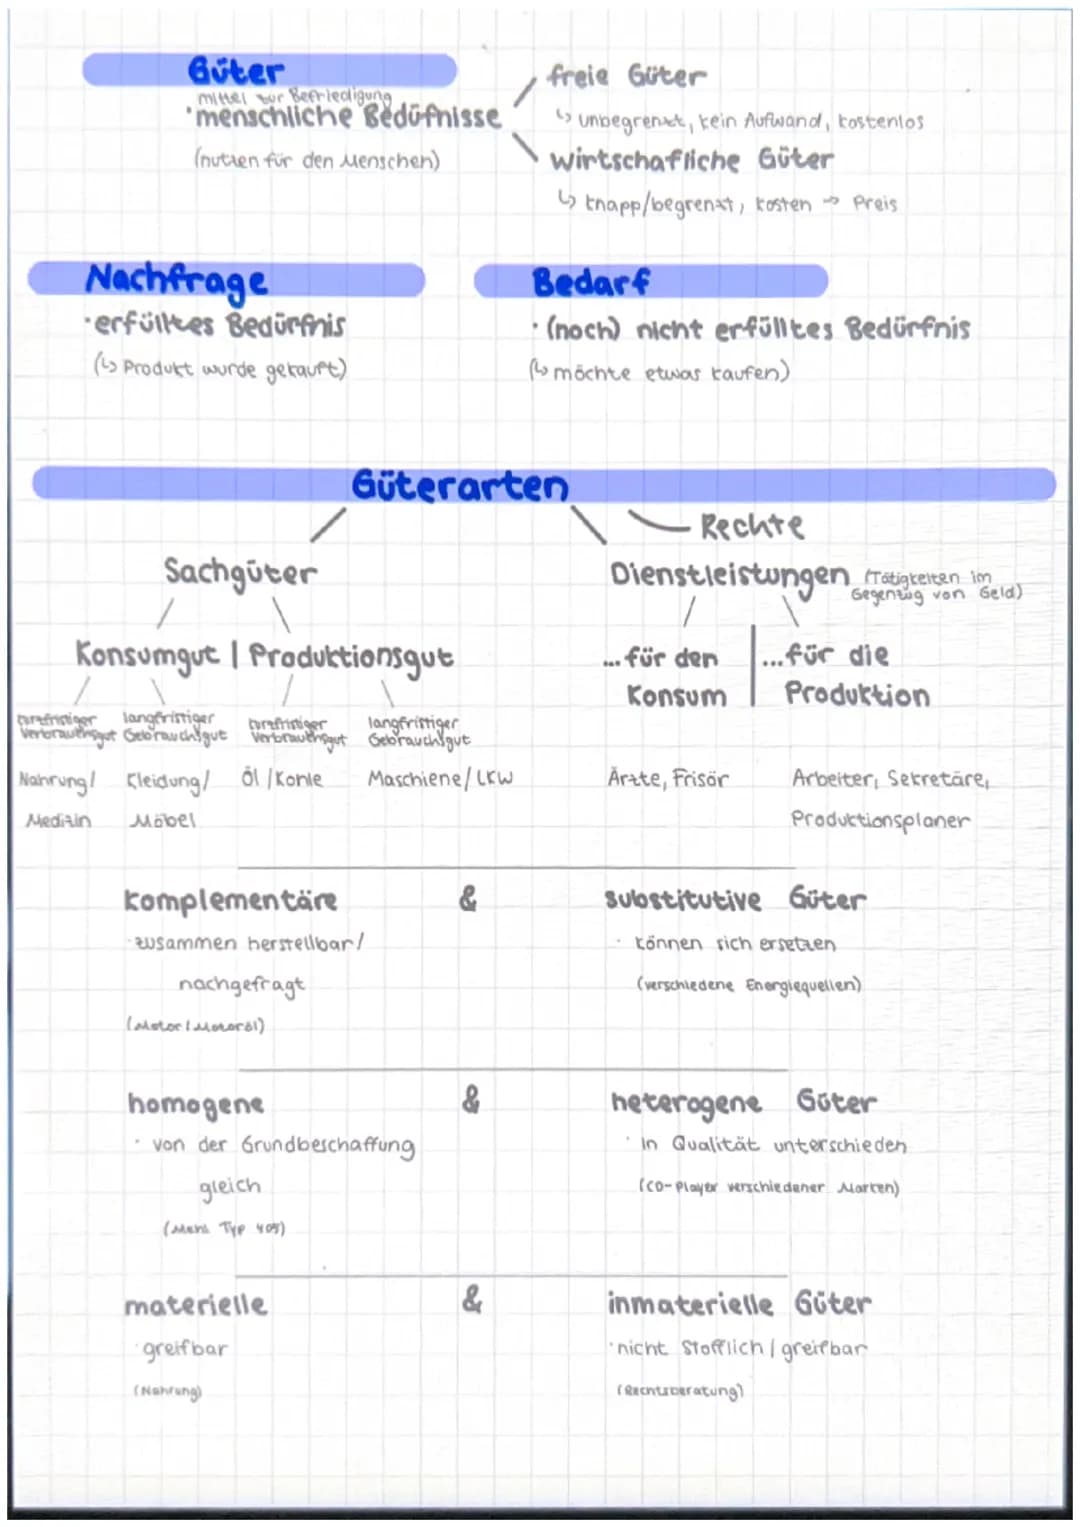 Güter
mittel zur Befriedigung
· menschliche Bedüfnisse
(nutzen für den Menschen)
freie Güter
↳ unbegrenzt, kein Aufwand, kostenlos
wirtschafliche Güter
↳ knapp/begrenzt, kosten → Preis
Nachfrage
· erfülltes Bedürfnis
(↳ Produkt wurde gekauft)
Bedarf
· (noch) nicht erfülltes Bedürfnis
(↳ möchte etwas kaufen)
Güterarten
Rechte
Sachgüter
Dienstleistungen (Tätigkeiten im
Gegenzug von Geld)
Konsumgut | Produktionsgut
...für den
Konsum
...für die
Produktion
kurzfristiger
Verbrauchsgut
langfristiger
Gebrauchsgut
kurzfristiger
Verbrauchsgut
langfristiger
Gebrauchsgut
Nahrung/
Medizin
Kleidung/
Möbel
Öl/Kohle
Maschiene/LKW
Ärzte, Frisör
Arbeiter, Sekretäre,
Produktionsplaner
komplementäre & substitutive Güter
· zusammen herstellbar/
nachgefragt
(Motor/Motoröl)
· können sich ersetzen
(verschiedene Energiequellen)
homogene & heterogene Güter
· von der Grundbeschaffung
gleich
(Mehl Typ 405)
· in Qualität unterschieden
(CD-Player verschiedener Marken)
materielle & inmaterielle Güter
· greifbar
(Nahrung)
· nicht Stofflich/greifbar
(Rechtsberatung)